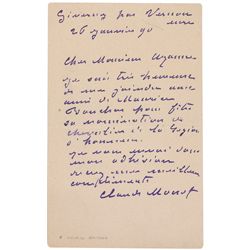 Giverny par Vernon
Eure
26 janvier 90
Cher Monsieur
je suis très heureux
de me joindre aux
amis de Maurice
Bouchor pour fêter
sa nomination de
chevalier de la Légion
d'honneur.
je vous envoie donc
mon adhésion
avec mes meilleurs
compliments
Claude Monet